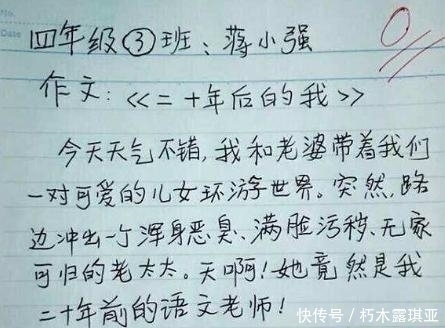 No.
Date
0
四年级③班:蒋小强
作文:《二十年后的我》
今天天气不错,我和老婆带着我们
一对可爱的儿女环游世界。突然,路
边冲出一个浑身恶臭、满脸污秽、无家
可归的老太太。天啊!她竟然是我
二十年前的语文老师!
快传号 / 朽木露琪亚